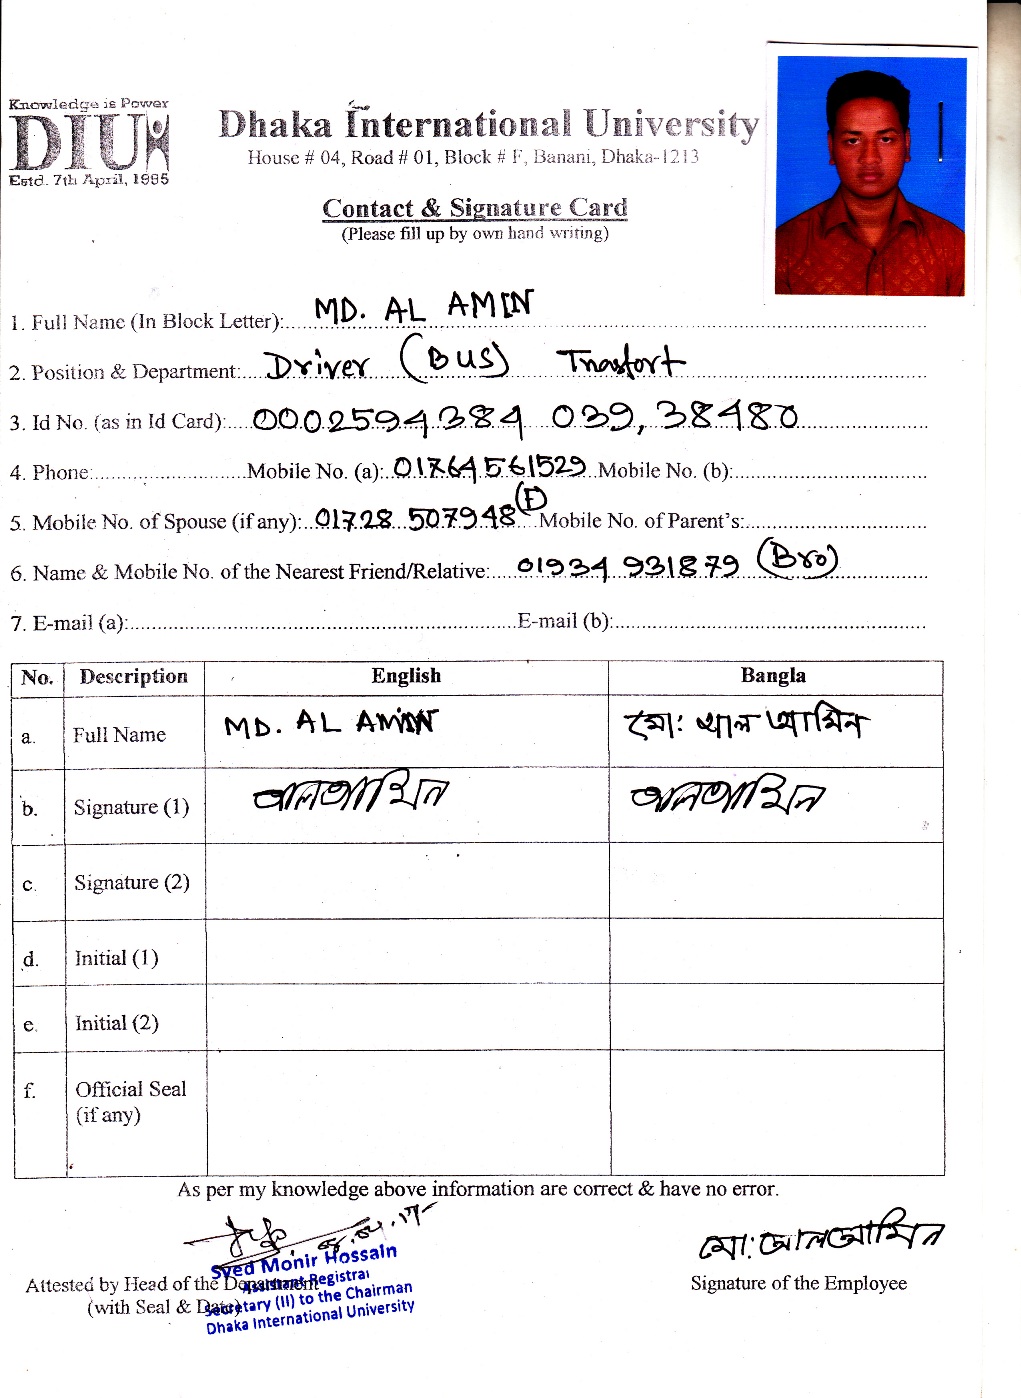 Knowledge is Power
DIU
Estd. 7th April, 1995
Dhaka International University
House # 04, Road # 01, Block # F, Banani, Dhaka-1213
Contact & Signature Card
(Please fill up by own hand writing)
1. Full Name (In Block Letter): MD. AL AMIN
2. Position & Department: Driver (BUS) Trasfort
3. Id No. (as in Id Card): 0002594384 039, 38480
4. Phone: Mobile No. (a): 01764561529 Mobile No. (b):
5. Mobile No. of Spouse (if any): 01728 507948 Mobile No. of Parent's:
6. Name & Mobile No. of the Nearest Friend/Relative: 01934 931879 (Bro)
7. E-mail (a): E-mail (b):
No. Description English Bangla
a. Full Name MD. AL AMIN মো: আল আমিন
b. Signature (1) আলআমিন আলআমিন
c. Signature (2)
d. Initial (1)
e. Initial (2)
f. Official Seal
(if any)
As per my knowledge above information are correct & have no error.
মো: আলআমিন
Syed Monir Hossain
Assistant Registrar
Attested by Head of the Department
Signature of the Employee
Secretary (II) to the Chairman
(with Seal & Date)
Dhaka International University